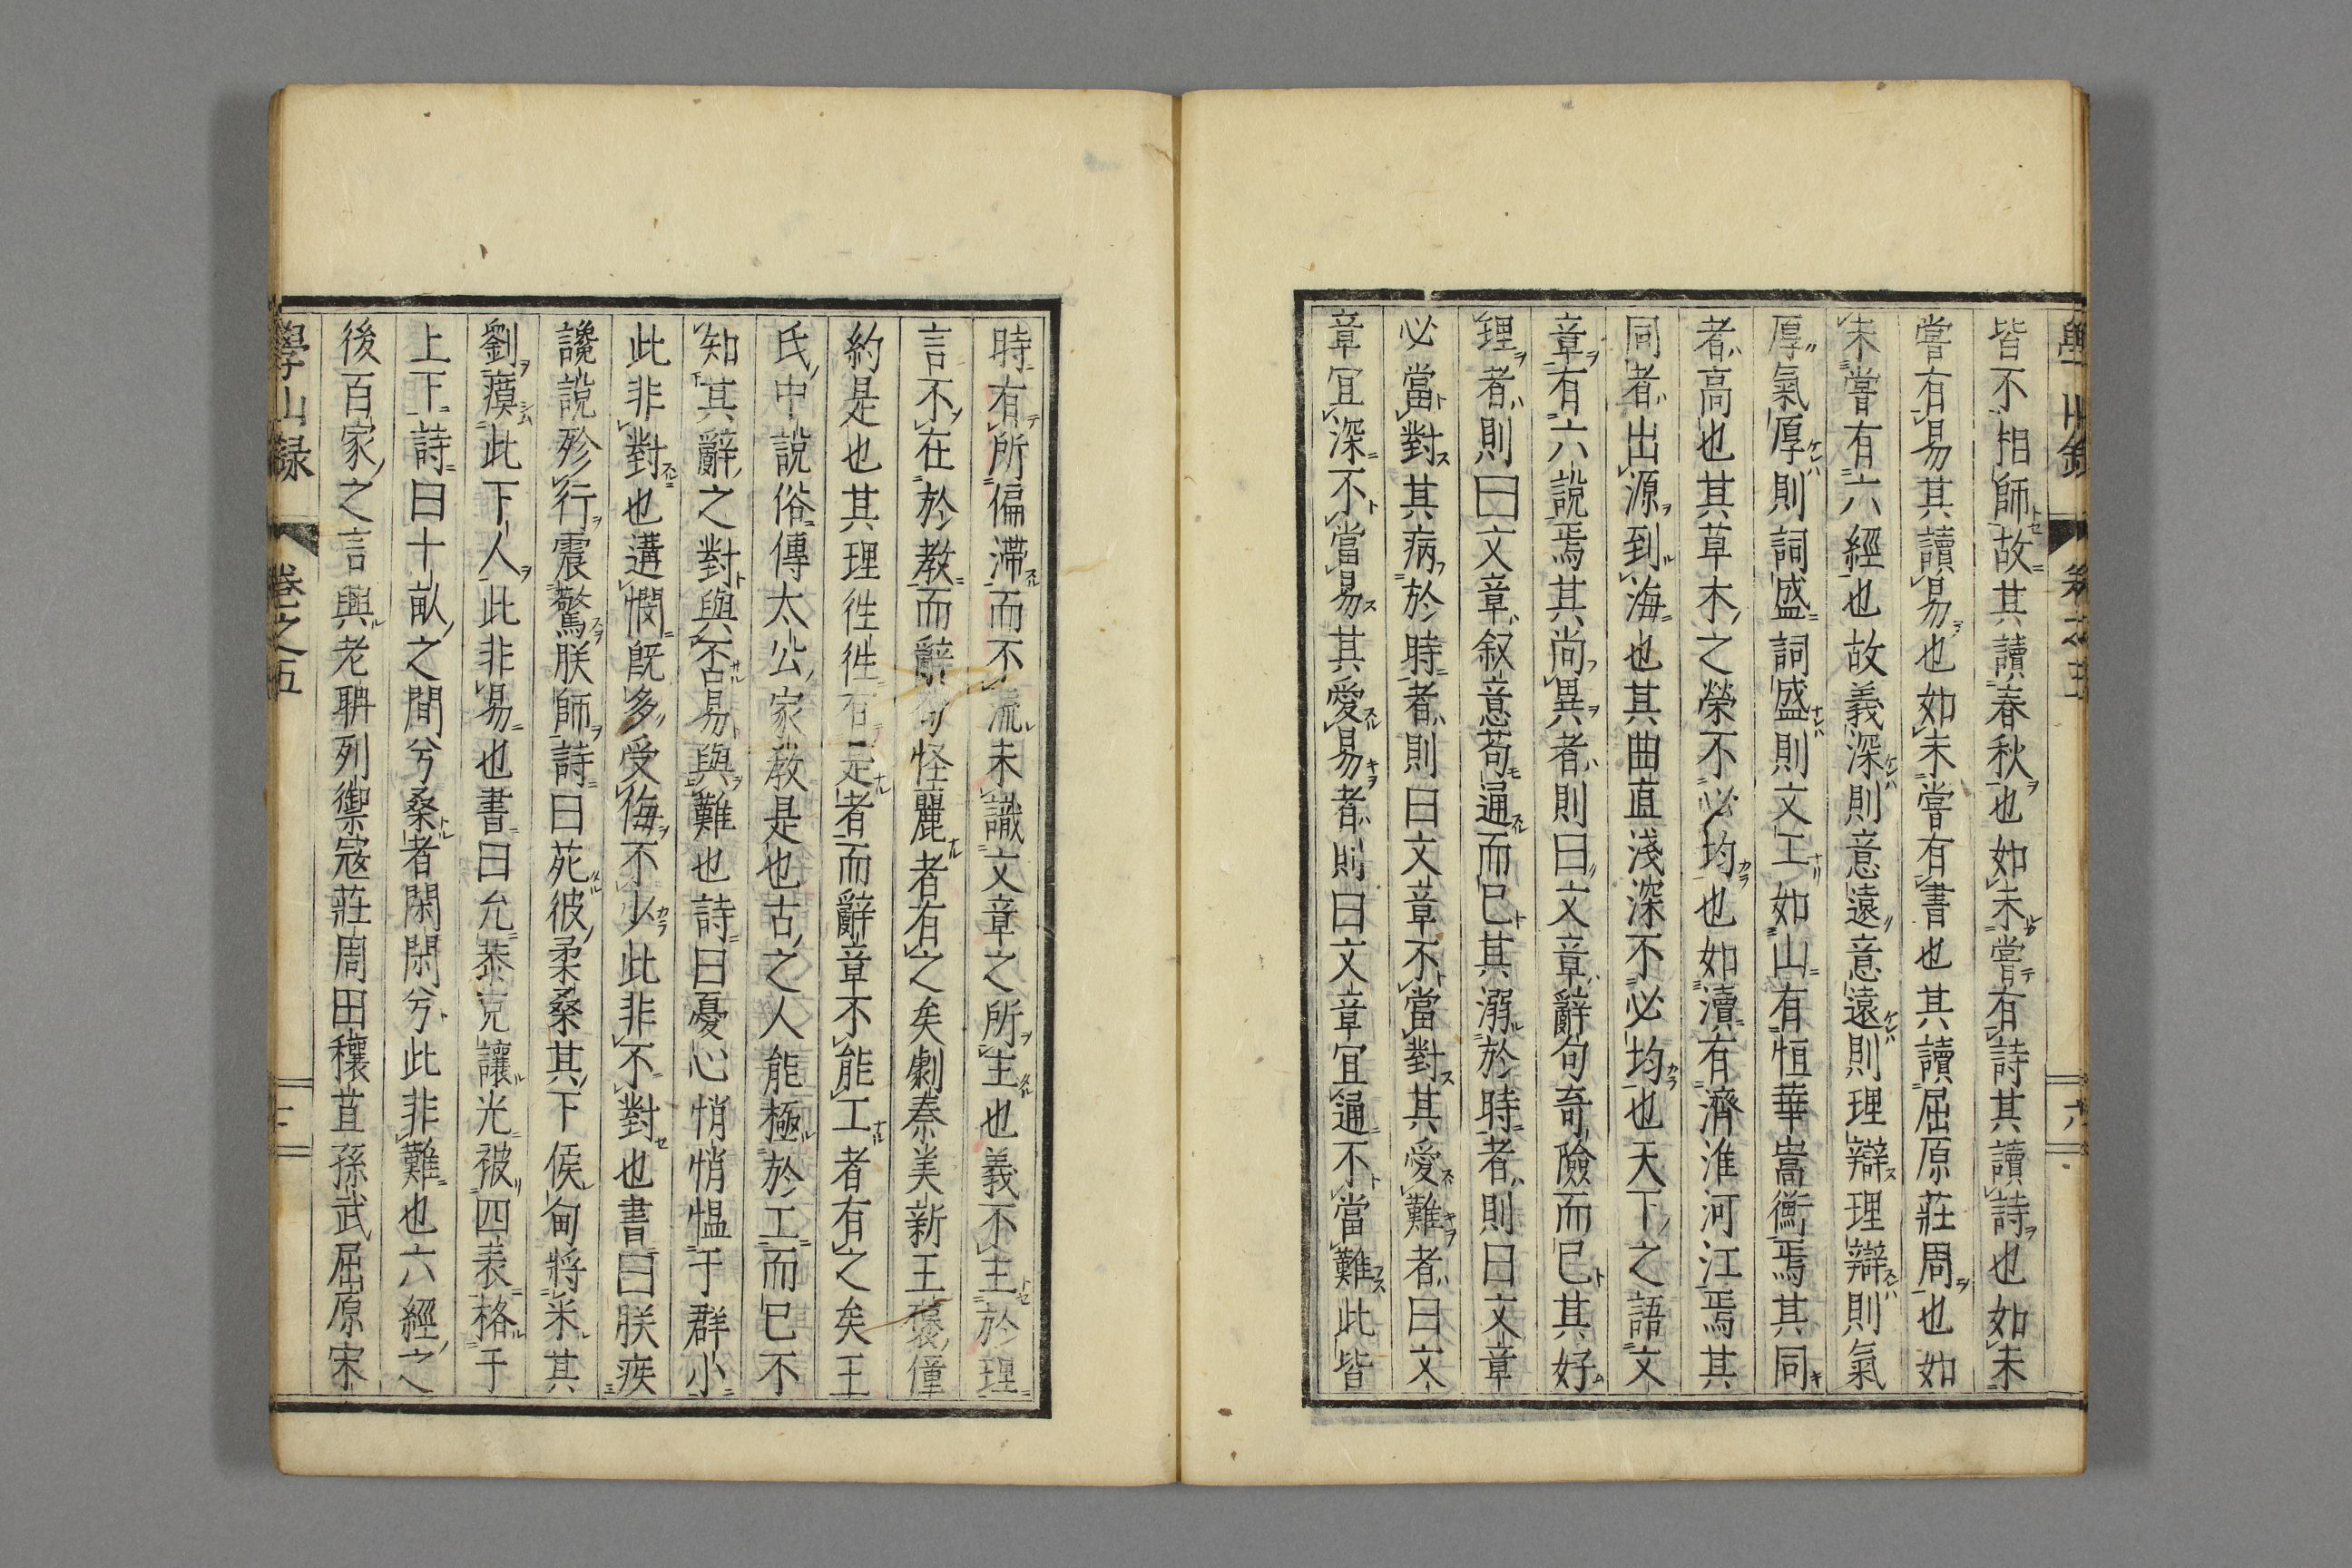 皆不相師故其讀春秋也如未嘗有詩其讀詩也如未
嘗有易其讀易也如未嘗有書也其讀屈原莊周也如
未嘗有六經也故義深則意遠意遠則理辯理辯則氣
厚氣厚則詞盛詞盛則文工如山有恒華嵩衡焉其同
者高也其草木之榮不必均也如瀆有濟淮河江焉其
同者出源到海也其曲直淺深不必均也天下之語文
章有六說焉其尚異者則曰文章辭句奇險而已其好
理者則曰文章叙意苟通而已其溺於時者則曰文章
必當對其病於時者則曰文章不當對其愛難者曰文
章宜深不當易其愛易者則曰文章宜通不當難此皆
時有所偏滯而不流未識文章之所主也義不主於理
言不在於教而辭句怪麗者有之矣劇秦美新王褒僮
約是也其理往往有是者而辭章不能工者有之矣王
氏中說俗傳太公家教是也古之人能極於工而已不
知其辭之對與否易與難也詩曰憂心悄悄慍于群小
此非對也遘憫既多受侮不少此非不對也書曰朕疾
讒說殄行震驚朕師詩曰苑彼柔桑其下侯甸將采其
劉瘼此下人此非易也書曰允恭克讓光被四表格于
上下詩曰十畝之間兮桑者閑閑兮此非難也六經之
後百家之言興老聃列禦寇莊周田穰苴孫武屈原宋
學山錄 卷之五